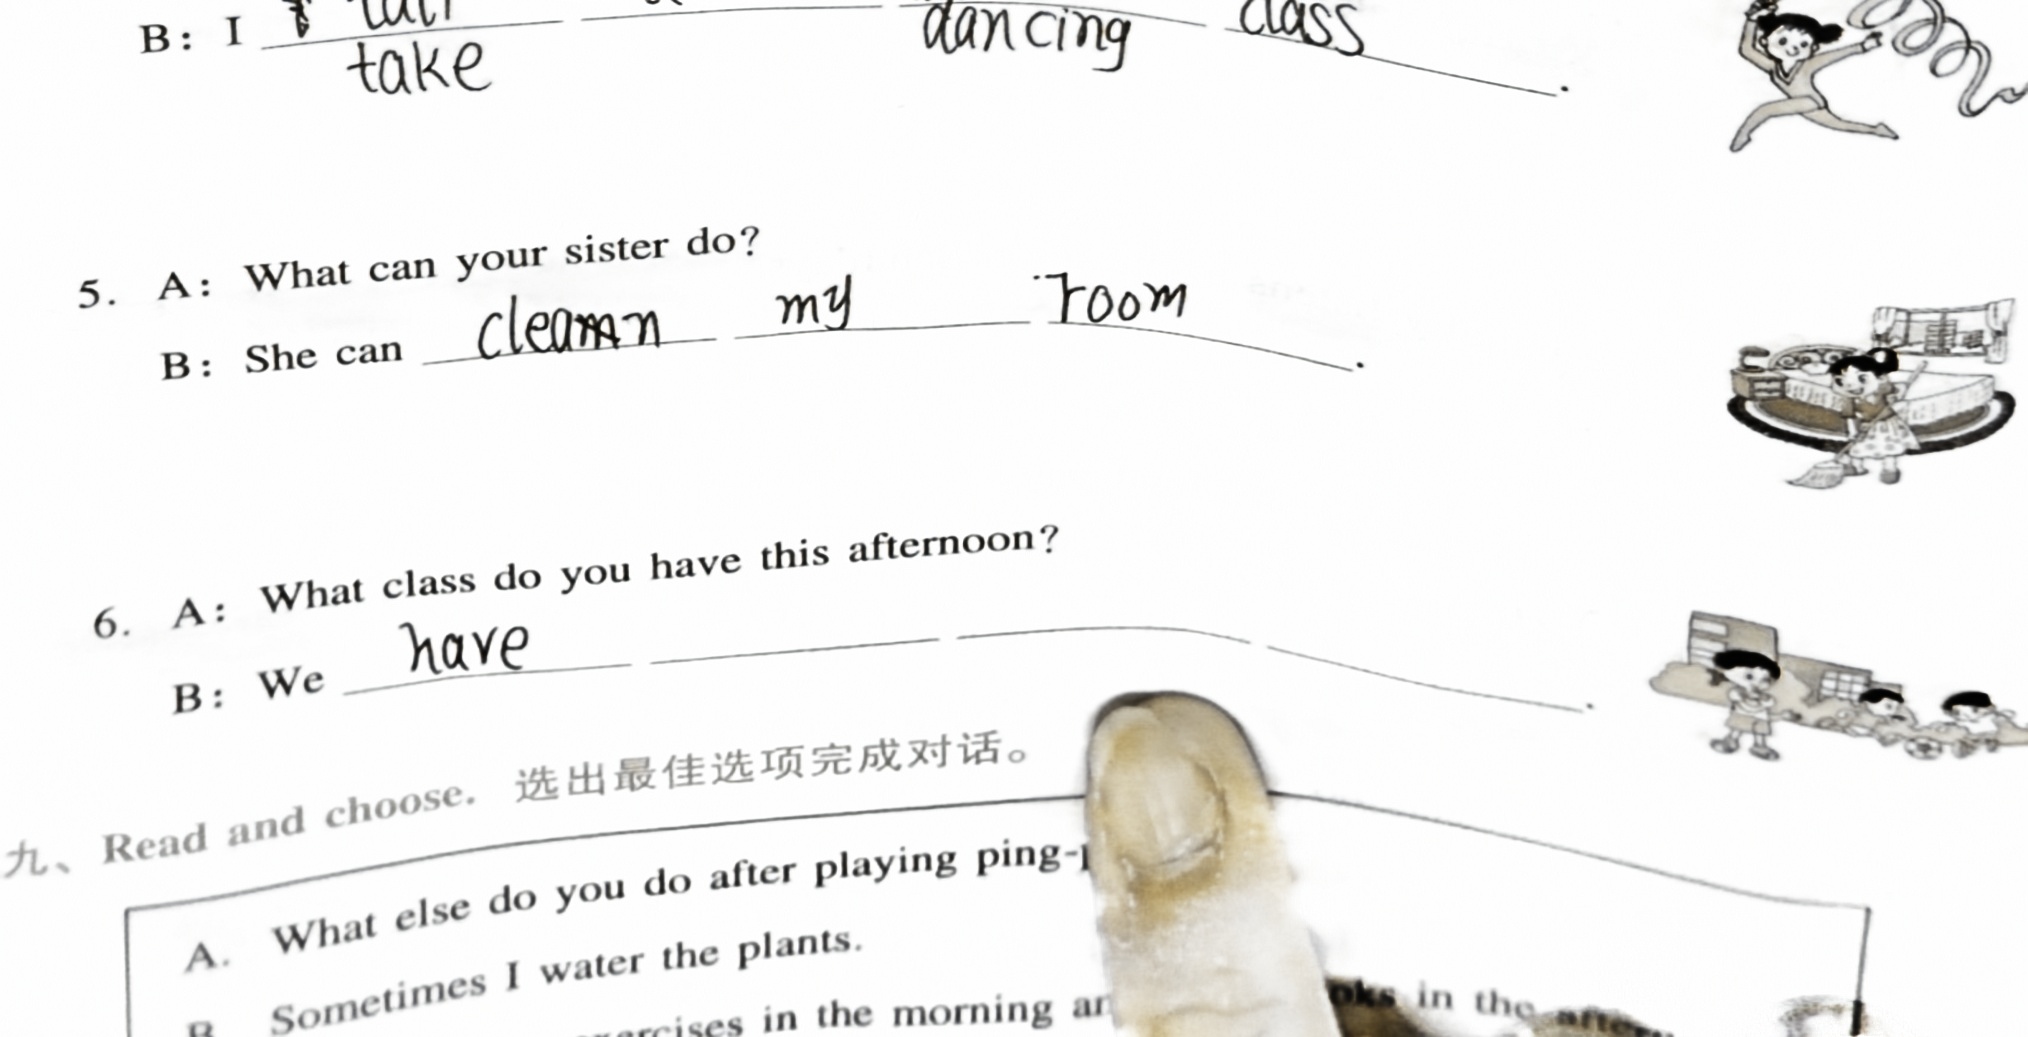 B: I dancing class.
take
5. A: What can your sister do?
B: She can cleamn my room.
6. A: What class do you have this afternoon?
B: We have .
九、Read and choose. 选出最佳选项完成对话。
A. What else do you do after playing ping-
B Sometimes I water the plants.
in the morning in the